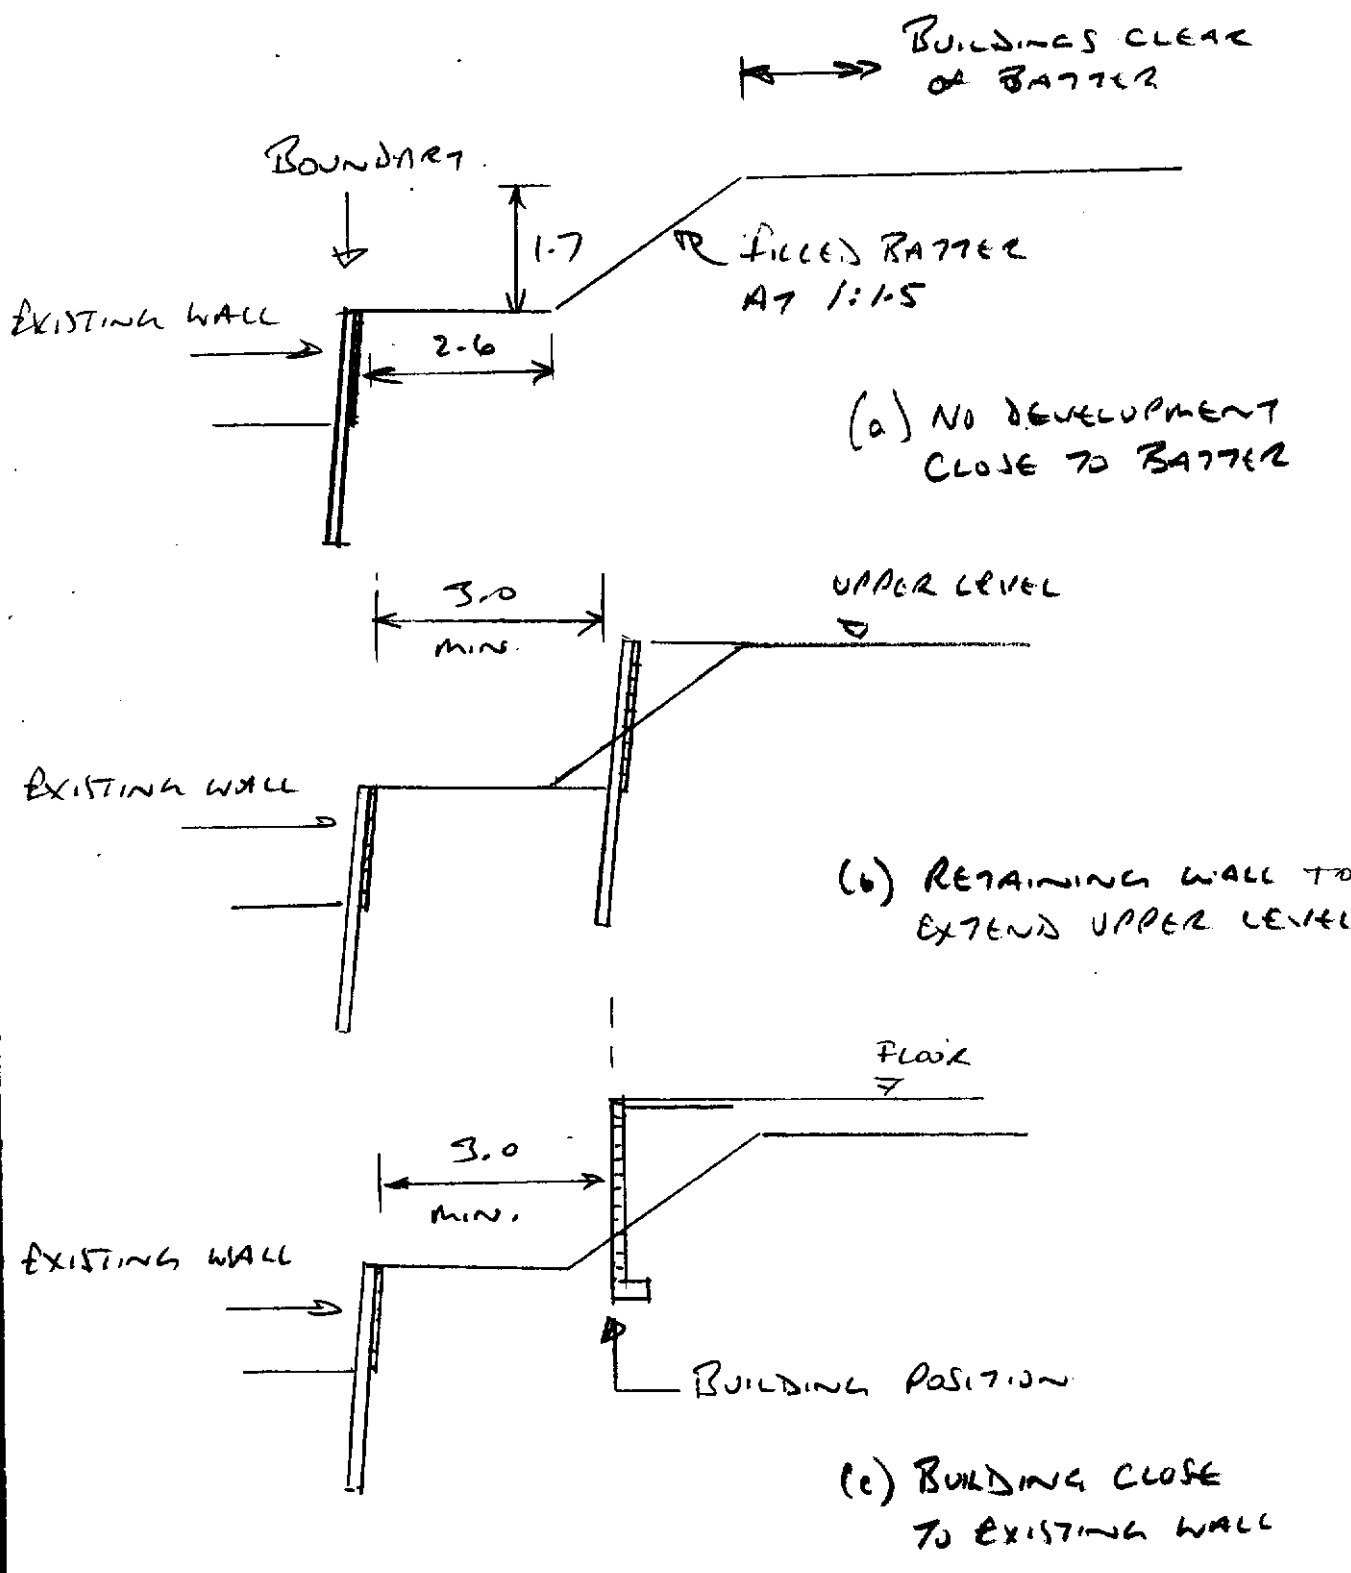 BUILDINGS CLEAR
OF BATTER
BOUNDARY
1.7
FILLED BATTER
AT 1:1.5
EXISTING WALL
2.6
(a) NO DEVELOPMENT
CLOSE TO BATTER
3.0
MIN.
UPPER LEVEL
EXISTING WALL
(b) RETAINING WALL TO
EXTEND UPPER LEVEL
FLOOR
3.0
MIN.
EXISTING WALL
BUILDING POSITION
(c) BUILDING CLOSE
TO EXISTING WALL